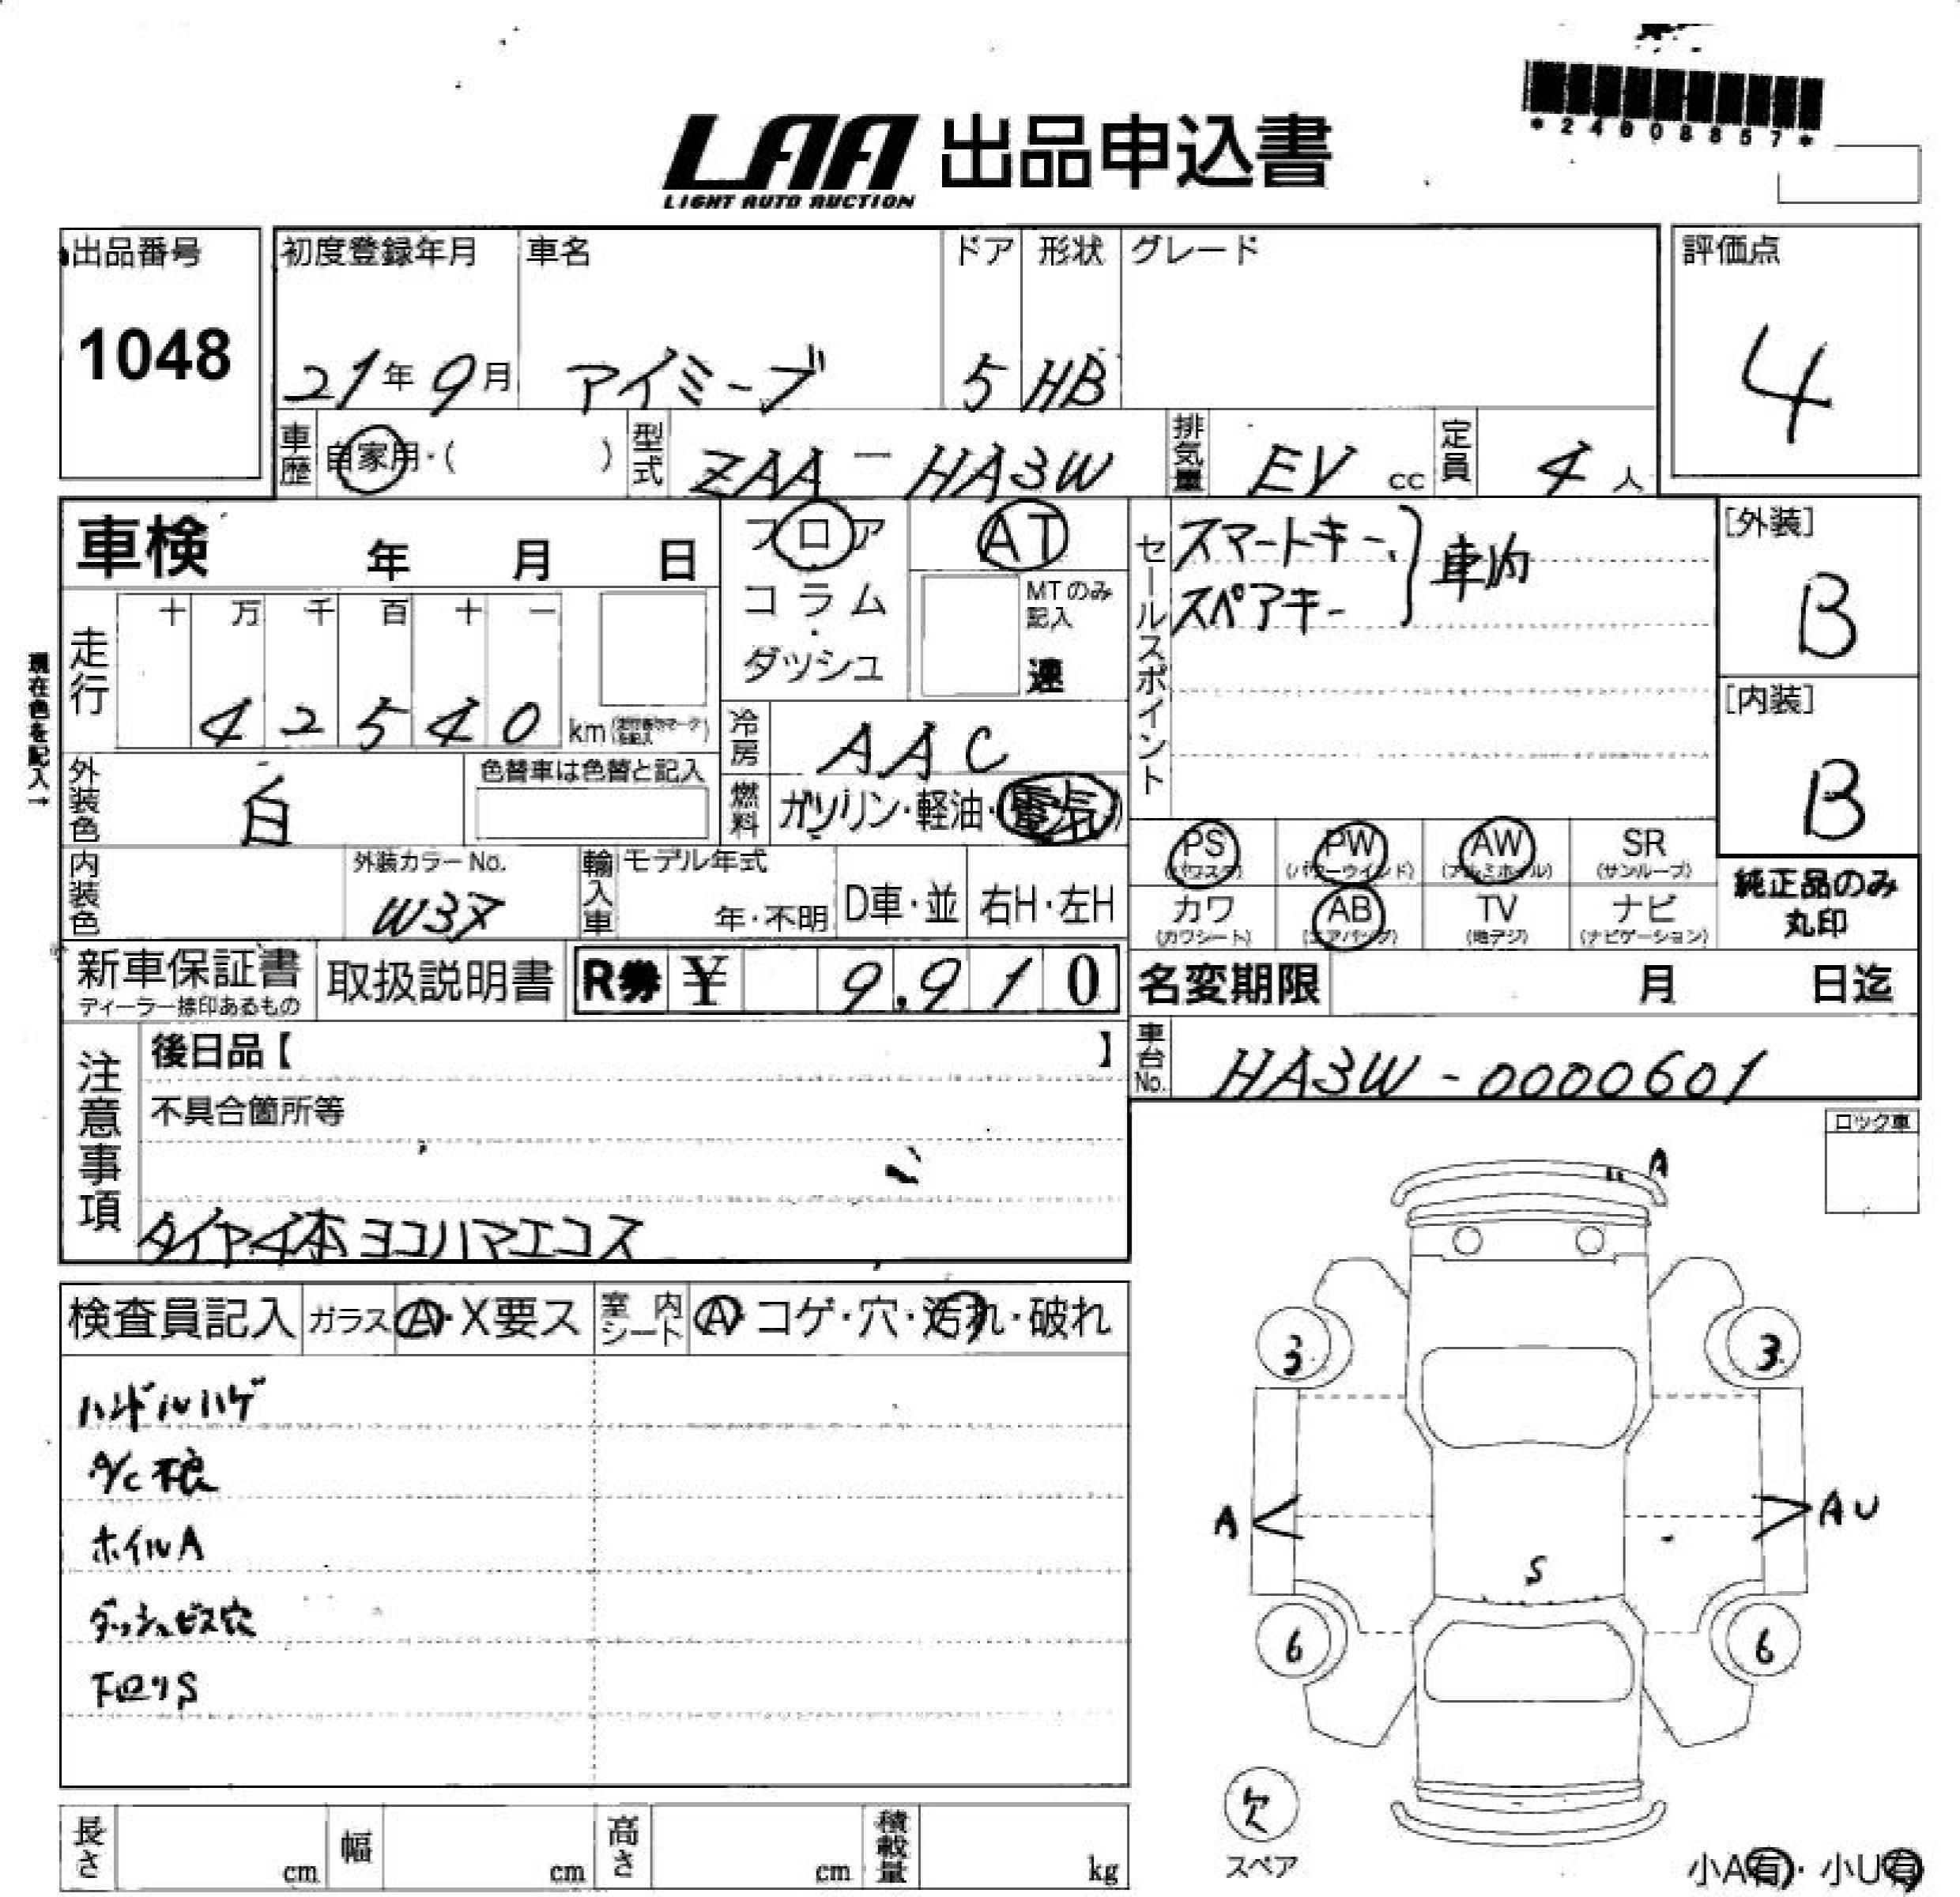 *24608857*
LAA 出品申込書
LIGHT AUTO AUCTION
出品番号 初度登録年月 車名 ドア 形状 グレード 評価点
1048 21年9月 アイミーブ 5 HB 4
車歴 自家用・( ) 型式 ZAA-HA3W 排気量 EV cc 定員 4人
車検 年 月 日
フロア
コラム
・
ダッシュ
AT
MTのみ
記入
速
セールスポイント
スマートキー、
スペアキー
車内
[外装]
B
[内装]
B
現在色を記入→
走行 十 万 千 百 十 一
42540 km
冷房 AAC
外装色 白 色替車は色替と記入
燃料 ガソリン・軽油・電気
内装色 外装カラーNo. 輸入車 モデル年式
W37 年・不明 D車・並 右H・左H
PS PW AW SR
(パワステ) (パワーウインド) (アルミホイル) (サンルーフ)
カワ AB TV ナビ
(カワシート) (エアバッグ) (地デジ) (ナビゲーション)
純正品のみ
丸印
新車保証書 取扱説明書 R券 ¥ 9,910
ディーラー捺印あるもの
名変期限 月 日迄
注意事項
後日品【 】
不具合箇所等
タイヤ4本ヨコハマエコス
車台No. HA3W-0000601
ロック車
検査員記入 ガラス A・X要ス 室内シート A・コゲ・穴・汚れ・破れ
ハンドルハゲ
A/C不良
ホイルA
ダッシュビス穴
下回りS
A
3 3
A AU
S
6 6
欠
スペア
小A有・小U有
長さ cm 幅 cm 高さ cm 積載量 kg